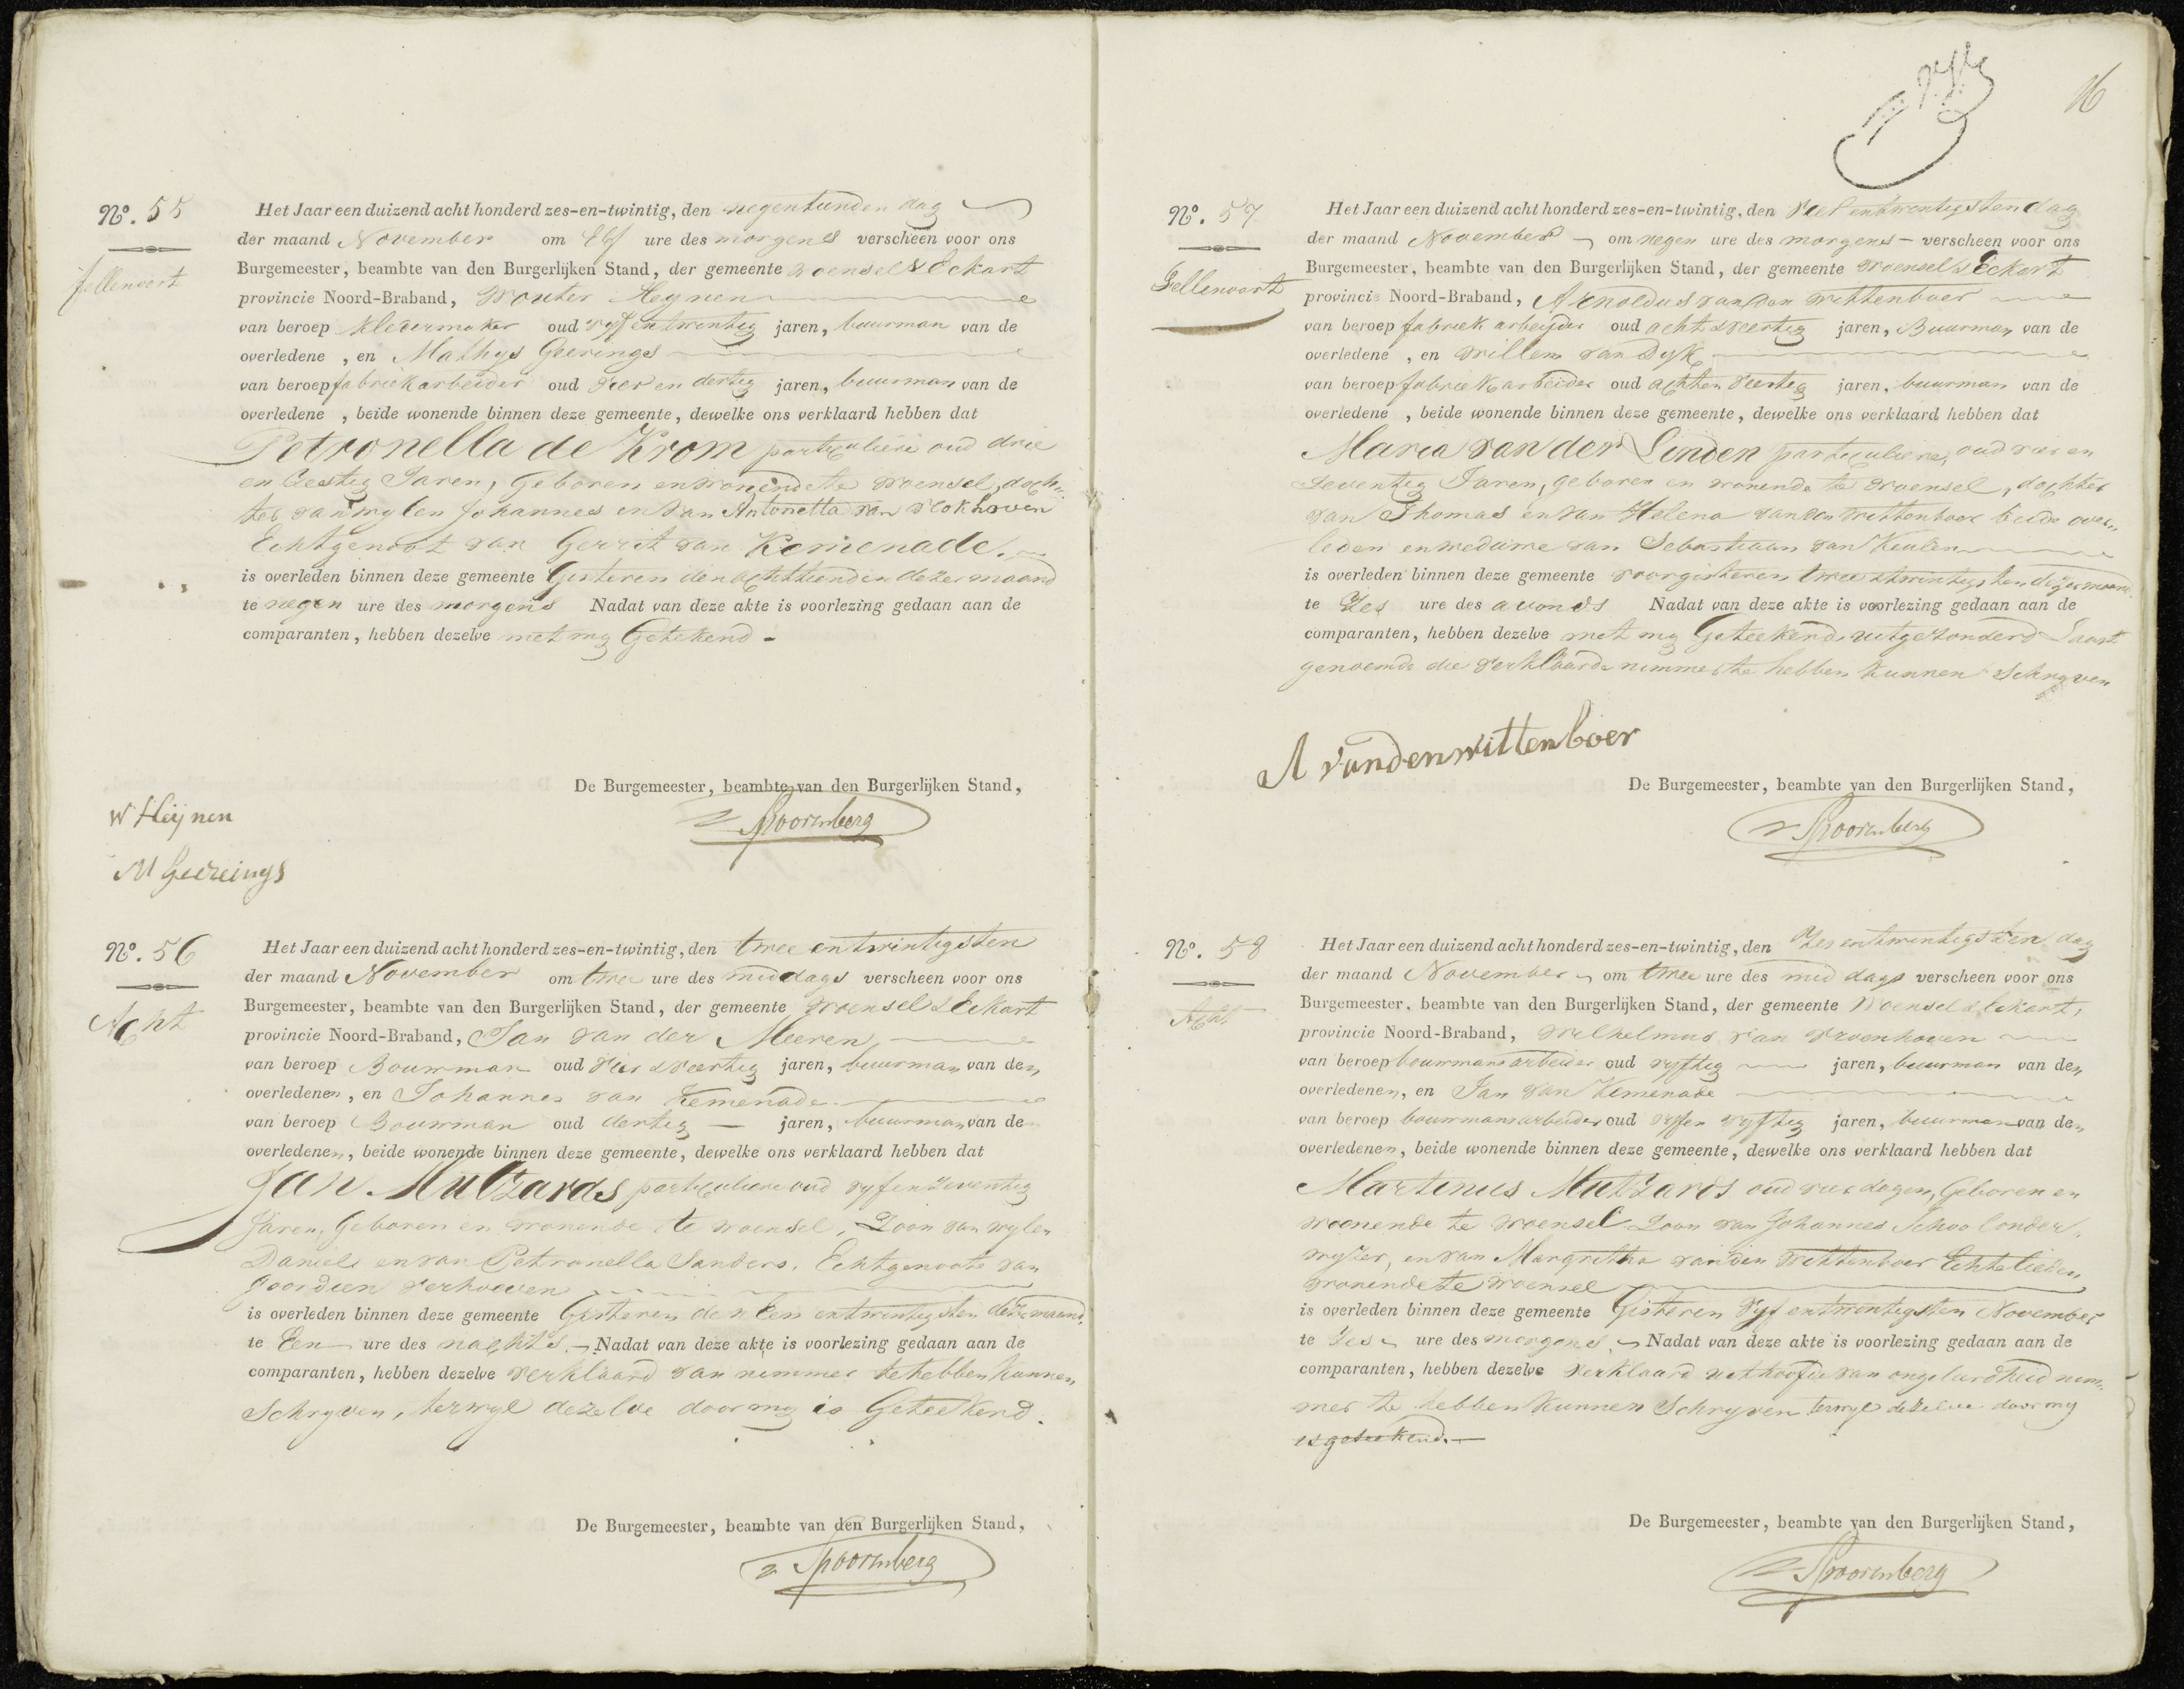 N.º 55
Fellenoort
Het Jaar een duizend acht honderd zes-en-twintig, den negentienden dag
der maand November om Elf ure des morgens verscheen voor ons
Burgemeester, beambte van den Burgerlijken Stand, der gemeente Woensel & Eckart
provincie Noord-Braband, Wouter Heynen
van beroep kledermaker oud vyf en twentig jaren, buurman van de
overledene , en Mathys Geerings
van beroep fabriekarbeider oud vier en dertig jaren, buurman van de
overledene , beide wonende binnen deze gemeente, dewelke ons verklaard hebben dat
Petronella de Krom particuliere oud drie
en Zestig Jaren, Geboren en wonende te Woensel, doch„
ter van wylen Johannes en van Antonetta van Blokhoven
Echtgenoot van Gerrit van Kemenade.
is overleden binnen deze gemeente Gisteren den achttienden dezer maand
te negen ure des morgens Nadat van deze akte is voorlezing gedaan aan de
comparanten, hebben dezelve met my Getekend -
De Burgemeester, beambte van den Burgerlijken Stand,
v Spoorenberg
W Heijnen
M Geerings
N.º 56
Acht
Het Jaar een duizend acht honderd zes-en-twintig, den twee en twintigsten
der maand November om twee ure des middags verscheen voor ons
Burgemeester, beambte van den Burgerlijken Stand, der gemeente Woensel & Eckart
provincie Noord-Braband, Jan van der Meeren
van beroep Bouwman oud vier & veertig jaren, buurman van den
overledenen, en Johannes van Kemenade
van beroep Bouwman oud dertig jaren, buurman van de
overledenen, beide wonende binnen deze gemeente, dewelke ons verklaard hebben dat
Jan Mutzards particuliere oud vyf en zeventig
Jaren, Geboren en wonende te Woensel, Zoon van wylen
Daniels en van Petronella Sanders, Echtgenoote van
Goordien Verhoeven
is overleden binnen deze gemeente Gisteren den Een entwintigsten dezer maand,
te Een ure des nachts. Nadat van deze akte is voorlezing gedaan aan de
comparanten, hebben dezelve verklaard van nimmer te hebben Kunnen
Schryven, terwyl dezelve door my is Geteekend.
De Burgemeester, beambte van den Burgerlijken Stand,
v Spoorenberg
16
N.º 57
Fellenoort
Het Jaar een duizend acht honderd zes-en-twintig, den Vier entwentigsten dag
der maand November om negen ure des morgens verscheen voor ons
Burgemeester, beambte van den Burgerlijken Stand, der gemeente Woensel & Eckart
provincie Noord-Braband, Arnoldus van den Wittenboer
van beroep fabriek arbeyder oud acht & veertig jaren, Buurman van de
overledene , en Willem van Dyk
van beroep fabriekarbeider oud achten veertig jaren, buurman van de
overledene , beide wonende binnen deze gemeente, dewelke ons verklaard hebben dat
Maria van der Linden particuliere, oud vier en
Zeventig Jaren, geboren en wonende te Woensel, dochter
van Thomas en van Helena van den Wittenboer beide over„
leden en weduwe van Sebastiaan van Keulen
is overleden binnen deze gemeente voorgisteren twee & twintigsten dezer maand
te Zes ure des avonds Nadat van deze akte is voorlezing gedaan aan de
comparanten, hebben dezelve met my Geteekend uitgezonderd Laast
genoemde die verklaarde nimmer te hebben kunnen Schryven
A vandenwittenboer
De Burgemeester, beambte van den Burgerlijken Stand,
v Spoorenberg
N.º 58
Acht
Het Jaar een duizend acht honderd zes-en-twintig, den Zes entwintigsten dag
der maand November om twee ure des mid dags verscheen voor ons
Burgemeester, beambte van den Burgerlijken Stand, der gemeente Woensel & Eckart,
provincie Noord-Braband, Wilhelmus van Vroenhoven
van beroep bouwmansarbeider oud vyftig jaren, buurman van den
overledenen, en Jan van Kemenade
van beroep bouwmansarbeider oud vyfen vyftig jaren, buurman van den
overledenen, beide wonende binnen deze gemeente, dewelke ons verklaard hebben dat
Martinus Mutzards oud vier dagen, Geboren en
woonende te Woensel Zoon van Johannes Schoolonder„
wyzer, en van Margritha van den Wittenboer Echtelieden
wonende te Woensel
is overleden binnen deze gemeente Gisteren Vyf entwintigsten November
te Zes ure des morgens. Nadat van deze akte is voorlezing gedaan aan de
comparanten, hebben dezelve verklaard uit hoofde van ongeleerdheid nim„
mer te hebben Kunnen Schryven terwyl dezelve door my
is geteekend.
De Burgemeester, beambte van den Burgerlijken Stand,
v Spoorenberg